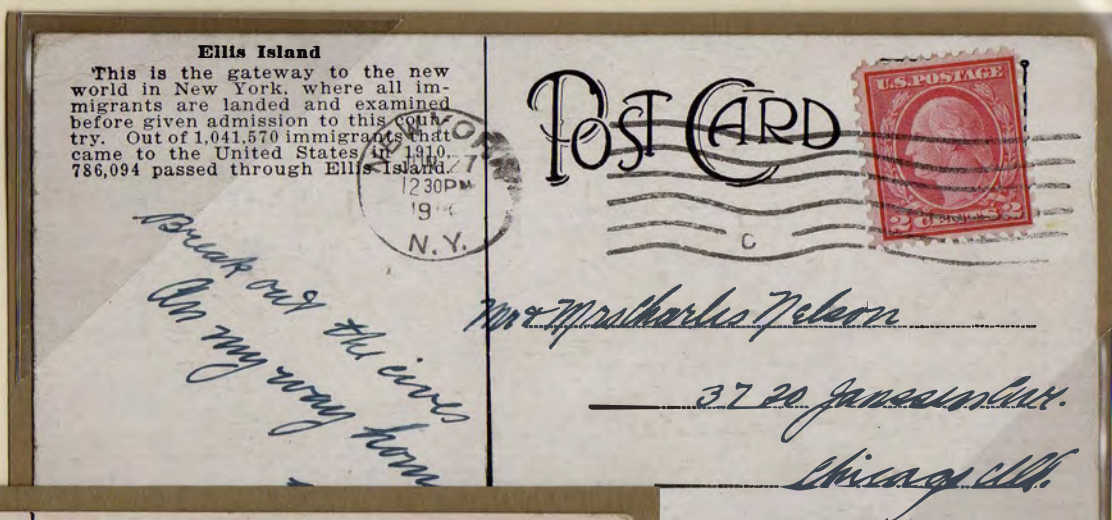 Ellis Island
This is the gateway to the new
world in New York, where all im-
migrants are landed and examined
before given admission to this coun-
try. Out of 1,041,570 immigrants that
came to the United States in 1910,
786,094 passed through Ellis Island.
NEW YORK
27
12 30PM
19
N.Y.
POST CARD
C
U.S. POSTAGE
2 CENTS 2
Break out the
On my way home
Mr & Mrs Charles Nelson
3720 Janssen Ave.
Chicago Ill.